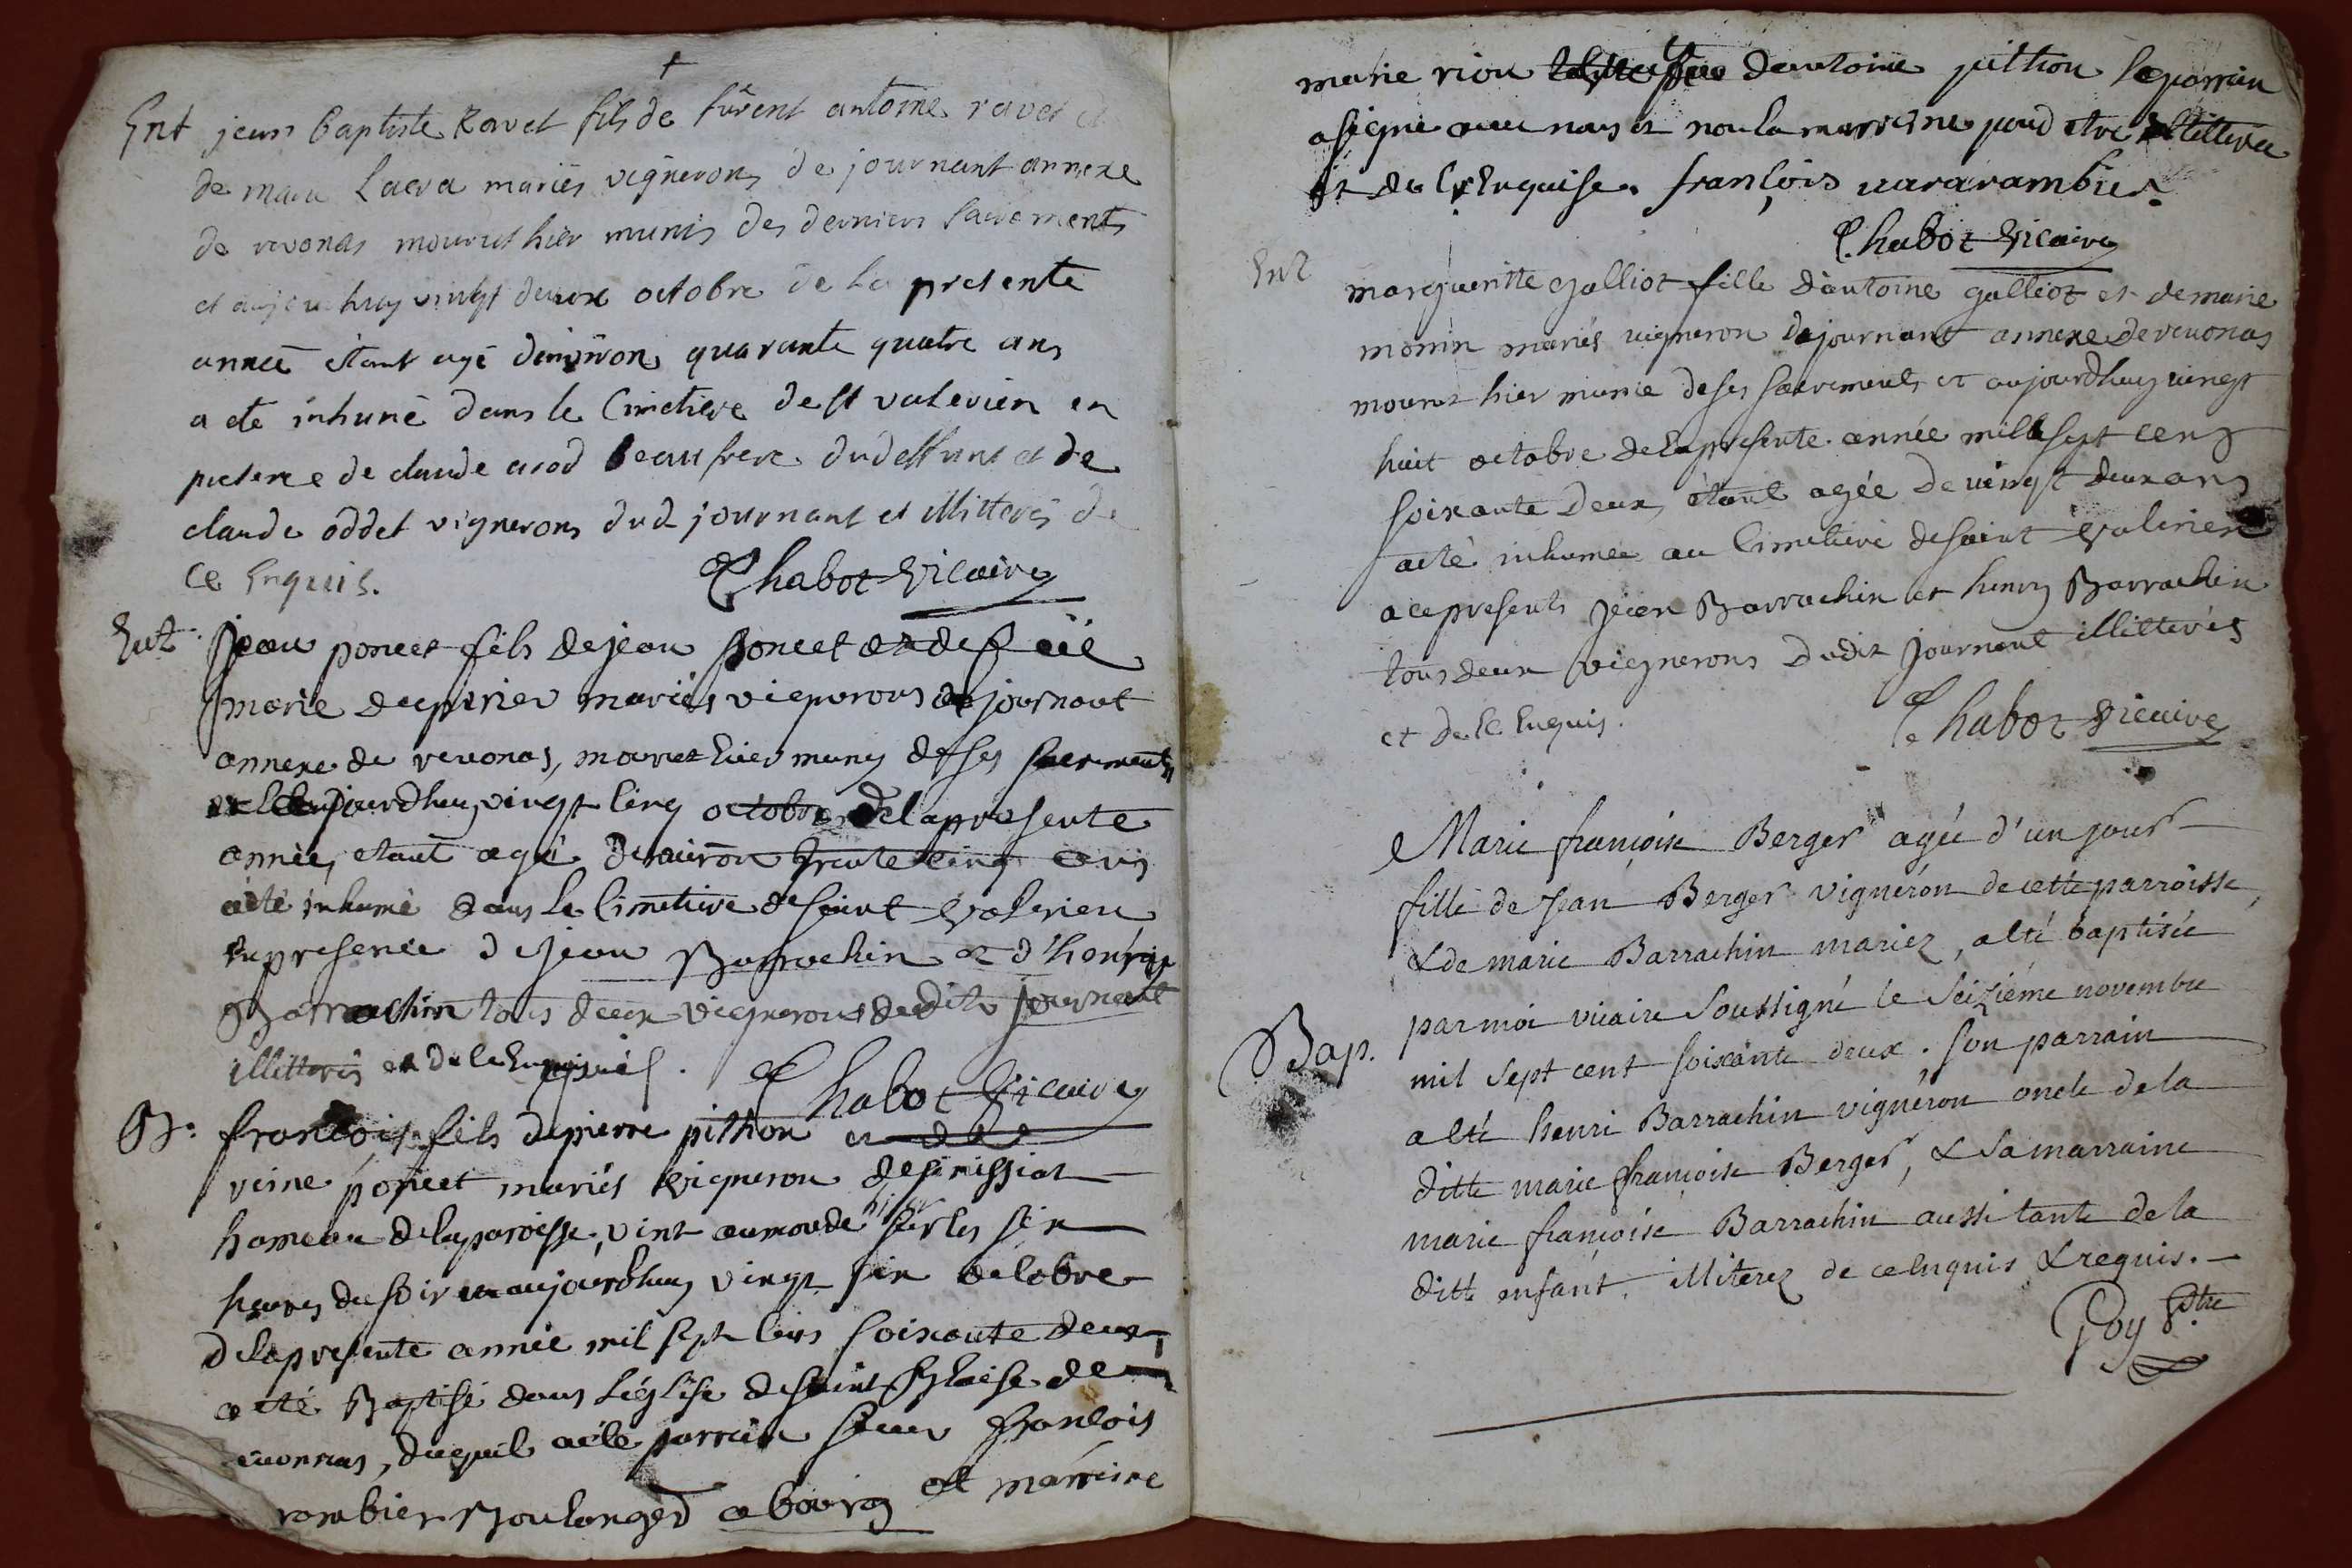 †
Ent jean baptiste Ravet fils de furent antoine ravet et
de marie Lacra mariés vignerons de journant annexe
de revonas mourut hier munis des derniers sacrements
et aujourhuy vingt deuxe octobre de la presente
année étant agé denviron quarante quatre ans
a eté inhumé dans le Cimetiere de st valerien en
presence de claude arod beaufrere dudeffunt et de
claude oddet vignerons dud journant et illitterés de
ce Enquis. Chabot Vicaire
Ent. jean poncet fils de jean poncet et de
marie mariés vignerons de journant
annexe de revonas, mourut hier muny de ses sacrements
et aujourdhuy vingt cinq octobre de la presente
année, etant agé denviron trente cinq ans
a eté inhumé dans le Cimetiere de saint valerien
en presence de jean Barrachin et d'henry
Barrachin tous deux vignerons dudit journant
illitterés et de ce Enquis. Chabot Vicaire
B. francois fils de pierre pithion et de
reine poncet mariés vigneron de simissiat
hameau de la paroisse, vint au monde hier sur les six
heures du soir et aujourdhuy vingt six octobre
de la presente année mil sept cens soixante deux,
a eté Baptisé dans l'église de saint Blaise de
revonnas, duquel a eté parrain sieur francois
rambier Boulanger a bourg et marreine
marie riou dantoine pithion le parrain
a signé avec nous et non la marreine pour etre illitteree
et de ce Enquise. françois vararambier.
Chabot Vicaire
Ent margueritte galliot fille d'antoine galliot et de marie
monin mariés vigneron de journant annexe de revonas
mourut hier munie de ses sacrements et aujourdhuy vingt
huit octobre de la presente année mille sept cens
soixante deux, étant agée de vingt deux ans
a eté inhumée au Cimetiere de saint valerien
a ce presents jean Barrachin et henry Barrachin
tous deux vignerons dudit journant illitterés
et de ce Enquis. Chabot Vicaire
Marie françoise Berger agée d'un jour
fille de jean Berger vignéron de cette parroisse,
& de marie Barrachin mariez, a été baptisée
par moi vicaire soussigné le seizième novembre
Bap. mil sept cent soixante deux. son parrain
a été henri Barrachin vignéron oncle de la
ditte marie françoise Berger, & sa marraine
marie françoise Barrachin aussi tante de la
ditte enfant. illiterez de ce enquis & requis.
Goy Ptre